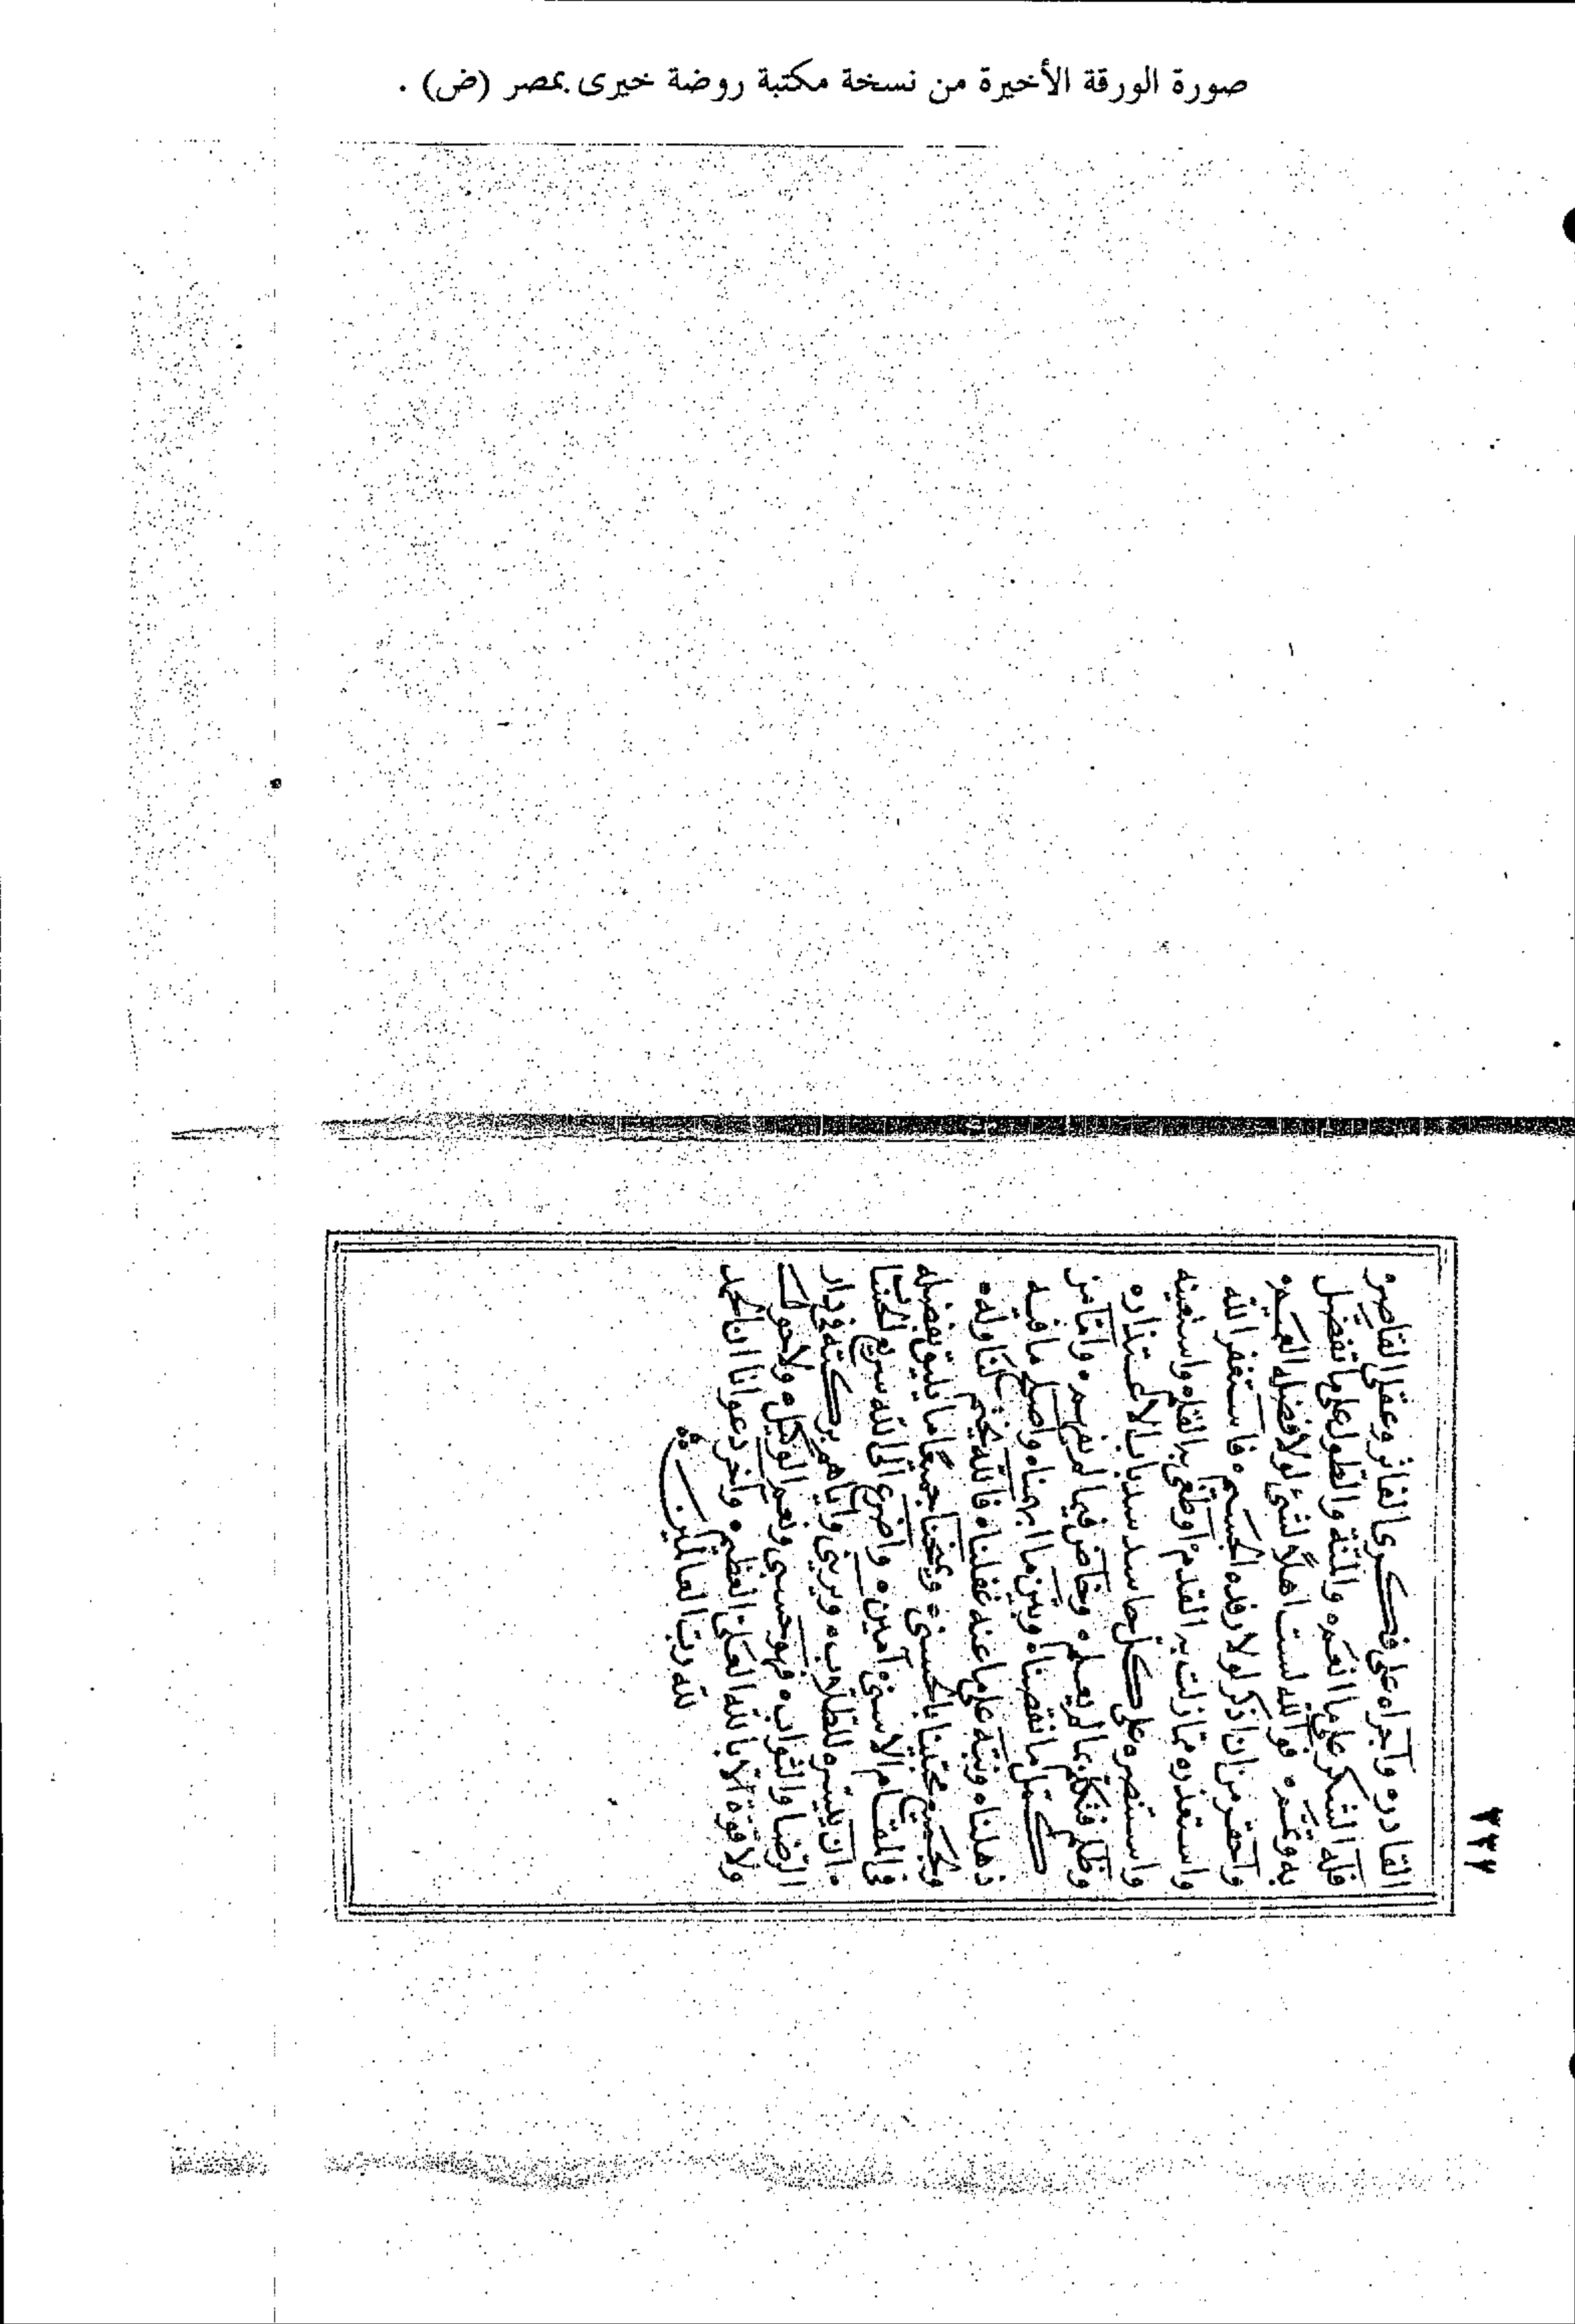 صورة الورقة الأخيرة من نسخة مكتبة روضة خيرى بمصر (ض) .
٢٣٧
القادر ه وأجراه على فكرى الفاتر وعقلى القاصر ه
فله الشكر على ما انعم ه والمنة والطول على ما تفضل
به وتمم ه فوالله لست اهلا لشئ لولا فضله العميم ه
وأحقر من ان اذكر لولا رفده الجسيم ه فاستغفر الله
واستعذره مما زلت به القدم أو طغى به القلم ه واستعينه
واستنصره على كل حاسد سد باب الاعتذار ه
وظلم فتكلم بما لم يعلم ه وخاض فيما لم يفهم ه وامّا من
كمّل ما نقصناه وبين ما ابهمناه واصلح ما فيه
ذهلناه ونبه على ما عنه غفلناه ه فالله يختم لنا وله ه
ولجميع محبينا بالحسنى ه ويمنحنا جميعا ما يليق بفضله
فى المقام الاسنى ه آمين ه واضرع الى الله سريع الحساب
ه ان ييسره للطلاب ه ويرينى واياهم بركته فى دار
الرضا والثواب ه فهو حسبى ونعم الوكيل ه ولا حول
ولا قوة الا بالله العلى العظيم ه وآخر دعوانا ان الحمد
لله رب العالمين